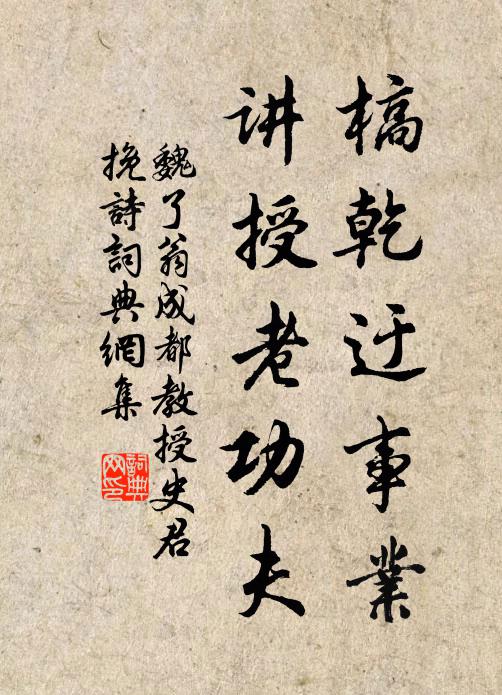 槁乾迂事業
讲授老功夫
魏了翁成都教授史君
挽詩詞典網集
詞典網印